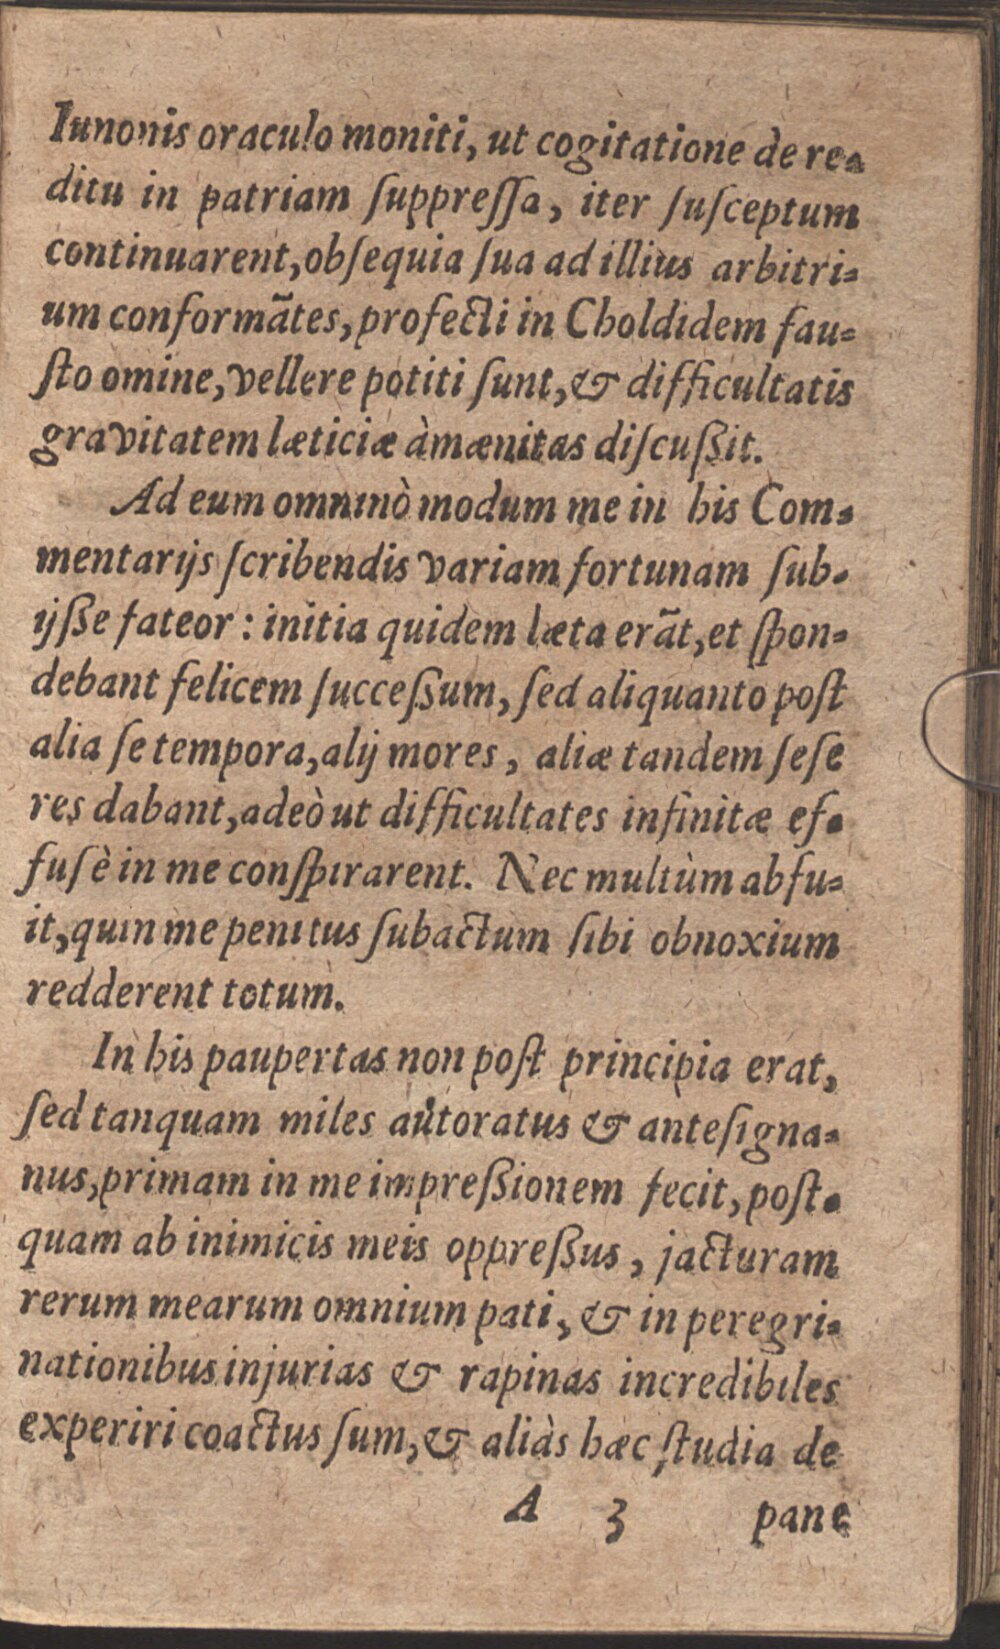 Iunonis oraculo moniti, ut cogitatione de re-
ditu in patriam ſuppreſſa, iter ſuſceptum
continuarent, obſequia ſua ad illius arbitri-
um conformātes, profecti in Choldidem fau-
ſto omine, vellere potiti ſunt, & difficultatis
gravitatem læticiæ àmænitas diſcußit.
Ad eum omninò modum me in his Com-
mentarijs ſcribendis variam fortunam ſub-
ijße fateor: initia quidem læta erāt, et ſpon-
debant felicem ſucceßum, ſed aliquanto poſt
alia ſe tempora, alij mores, aliæ tandem ſeſe
res dabant, adeò ut difficultates infinitæ ef-
fuſè in me conſpirarent. Nec multùm abfu-
it, quin me penitus ſubactum ſibi obnoxium
redderent totum.
In his paupertas non poſt principia erat,
ſed tanquam miles autoratus & anteſigna-
nus, primam in me impreßionem fecit, poſt-
quam ab inimicis meis oppreßus, jacturam
rerum mearum omnium pati, & in peregri-
nationibus injurias & rapinas incredibiles
experiri coactus ſum, & aliàs hæc ſtudia de
A 3 pane